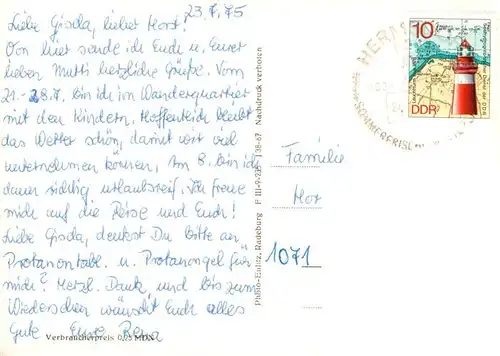 23.7.75
Liebe Gisela, lieber Horst!
Von hier sende ich Euch u. Eurer
lieben Mutti herzliche Grüße. Vom
21.-28.7. bin ich im Wanderquartier
mit den Kindern. Hoffentlich bleibt
das Wetter schön, damit wir viel
unternehmen können. Am 8. bin ich
dann richtig urlaubsreif. Ich freue
mich auf die Reise und Euch!
Liebe Gisela, denkst Du bitte an
"Protanontabl. u. Protanongel für
mich? Herzl. Dank und bis zum
Wiedersehen wünscht Euch alles
Gute Eure
Verbraucherpreis 0,05 MDN
Photo-Enlitz, Radeburg F III-9-235 138-67 Nachdruck verboten
10
DDR
Familie
1071